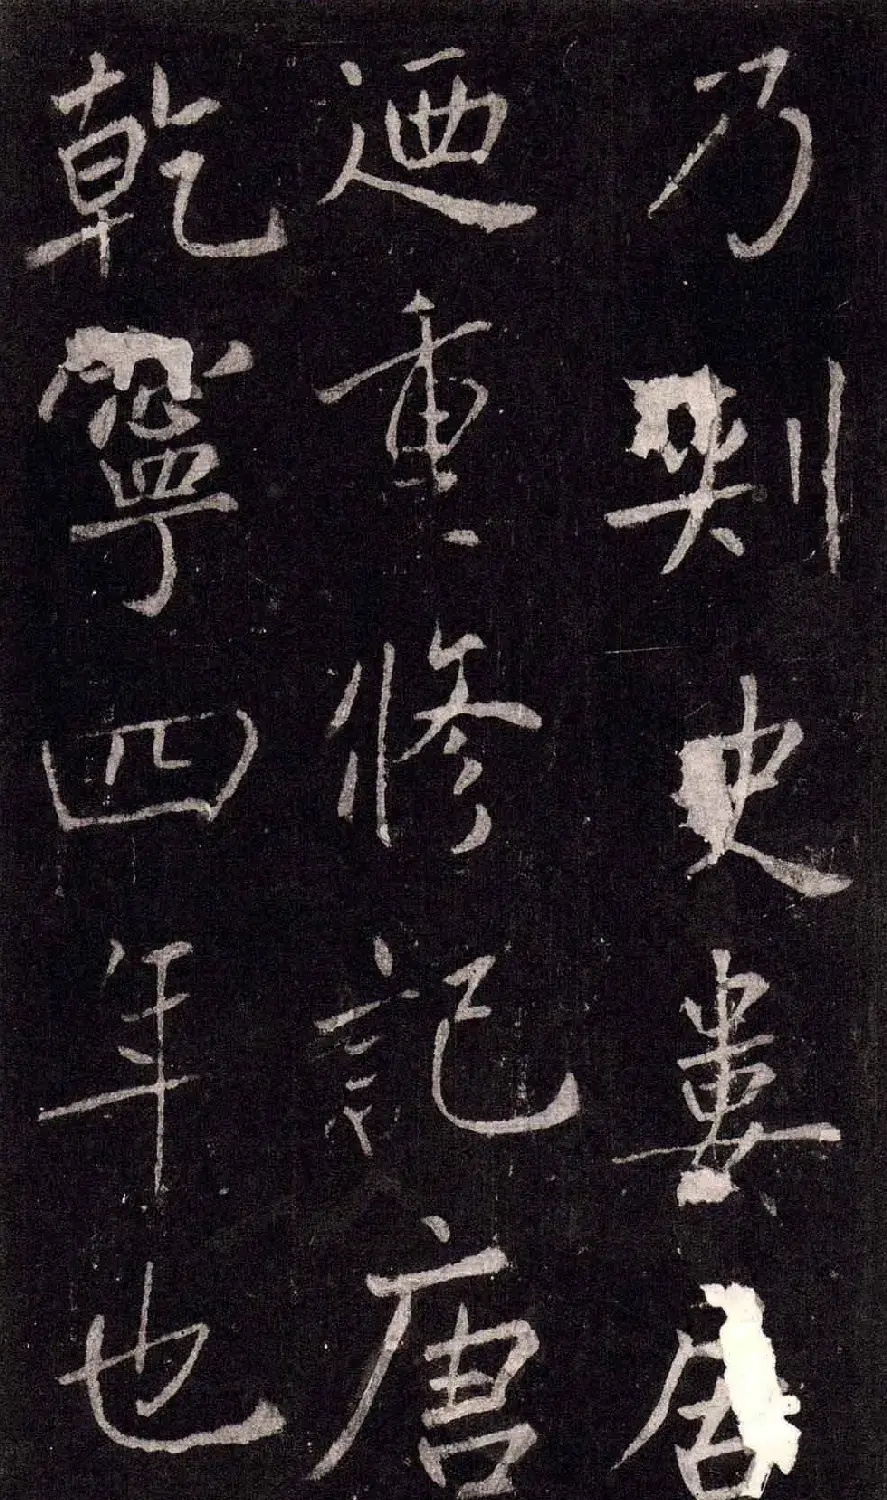 乃刺史婁居
迺重修記唐
乾寧四年也